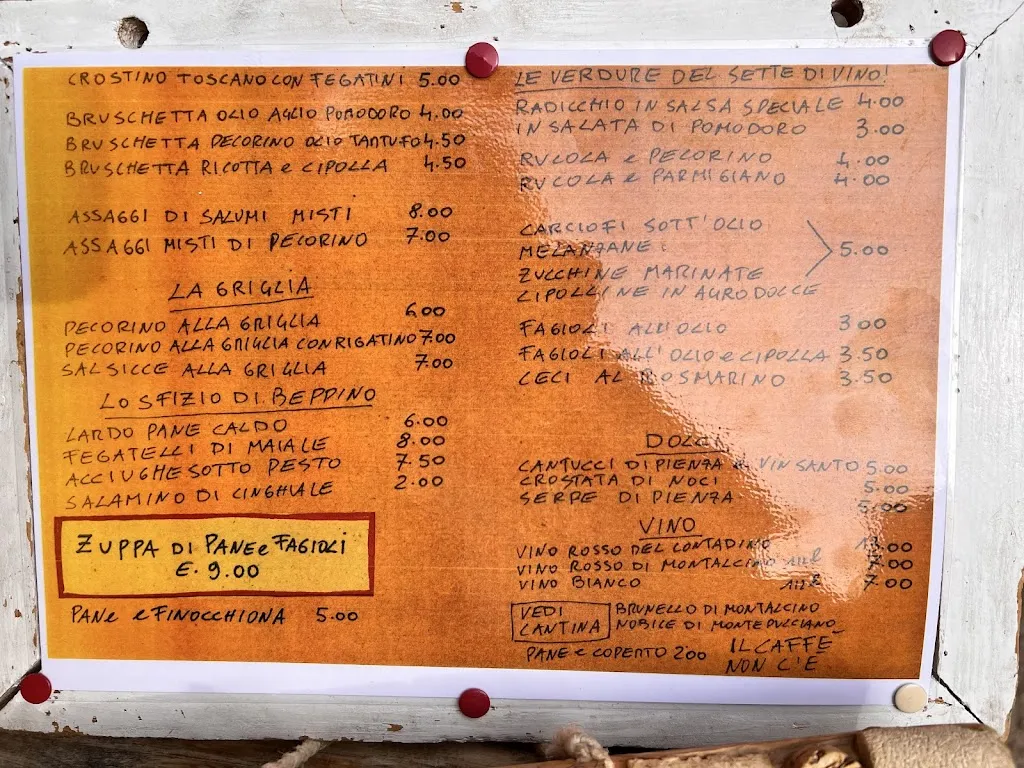 CROSTINO TOSCANO CON FEGATINI 5.00
BRUSCHETTA OLIO AGLIO POMODORO 4.00
BRUSCHETTA PECORINO OLIO TARTUFO 4.50
BRUSCHETTA RICOTTA e CIPOLLA 4.50
ASSAGGI DI SALUMI MISTI 8.00
ASSAGGI MISTI DI PECORINO 7.00
LA GRIGLIA
PECORINO ALLA GRIGLIA 6.00
PECORINO ALLA GRIGLIA CON RIGATINO 7.00
SALSICCE ALLA GRIGLIA 7.00
LO SFIZIO DI BEPPINO
LARDO PANE CALDO 6.00
FEGATELLI DI MAIALE 8.00
ACCIUGHE SOTTO PESTO 7.50
SALAMINO DI CINGHIALE 2.00
ZUPPA DI PANE e FAGIOLI
E. 9.00
PANe e FINOCCHIONA 5.00
LE VERDURE DEL SETTE DI VINO!
RADICCHIO IN SALSA SPECIALE 4.00
INSALATA DI POMODORO 3.00
RUCOLA e PECORINO 4.00
RUCOLA e PARMIGIANO 4.00
CARCIOFI SOTT'OLIO
MELANZANE
ZUCCHINE MARINATE 5.00
CIPOLLINE IN AGRODOLCE
FAGIOLI ALL'OLIO 3.00
FAGIOLI ALL'OLIO e CIPOLLA 3.50
CECI AL ROSMARINO 3.50
DOLCI
CANTUCCI DI PIENZA VIN SANTO 5.00
CROSTATA DI NOCI 5.00
SERPE DI PIENZA 5.00
VINO
VINO ROSSO DEL CONTADINO
VINO ROSSO DI MONTALCINO 7.00
VINO BIANCO 7.00
VEDI CANTINA
BRUNELLO DI MONTALCINO
NOBILE DI MONTEPULCIANO
PANE e COPERTO 2.00
IL CAFFÈ
NON C'E